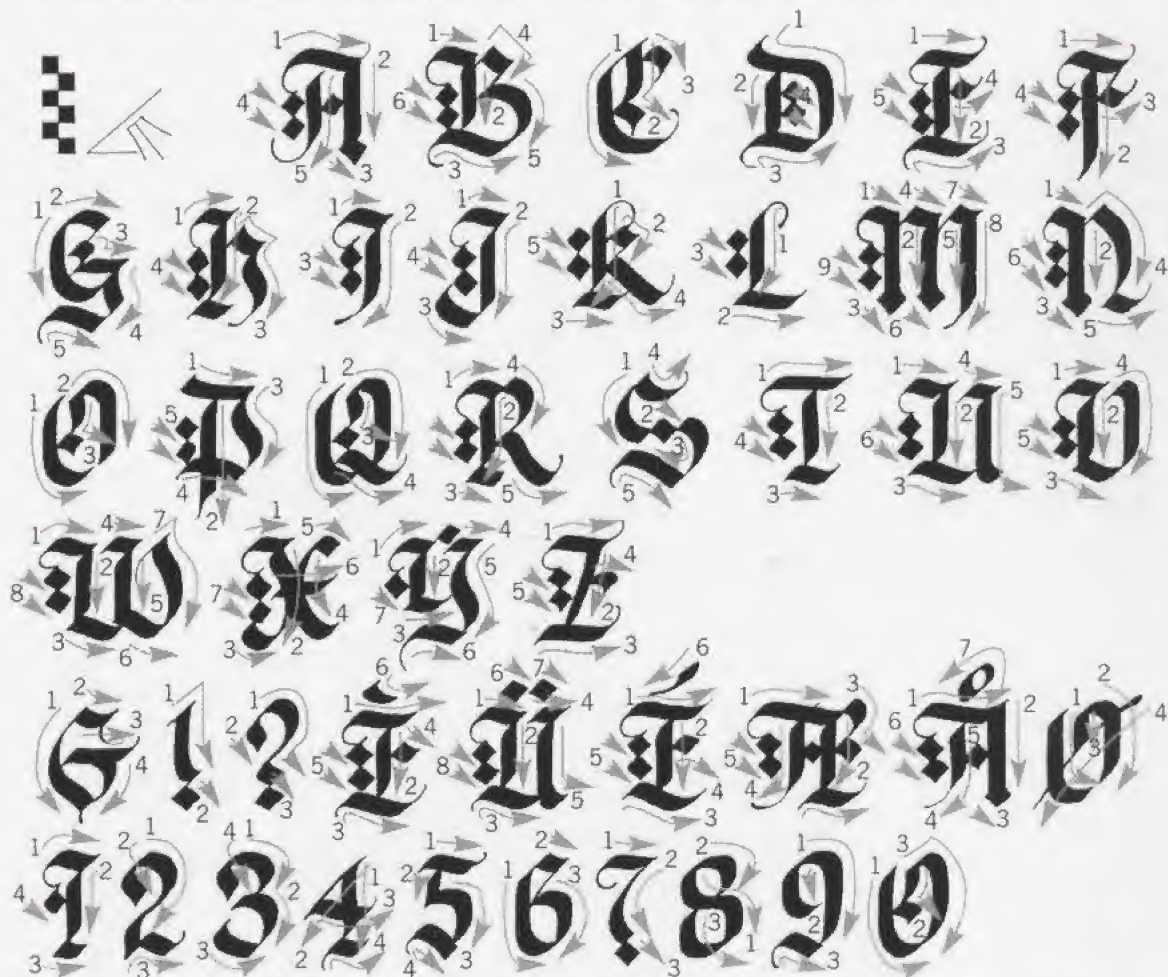 A B C D E F
G H I J K L M N
O P Q R S T U V
W X Y Z
! ? È Ü É Æ Å Ø
1 2 3 4 5 6 7 8 9 0